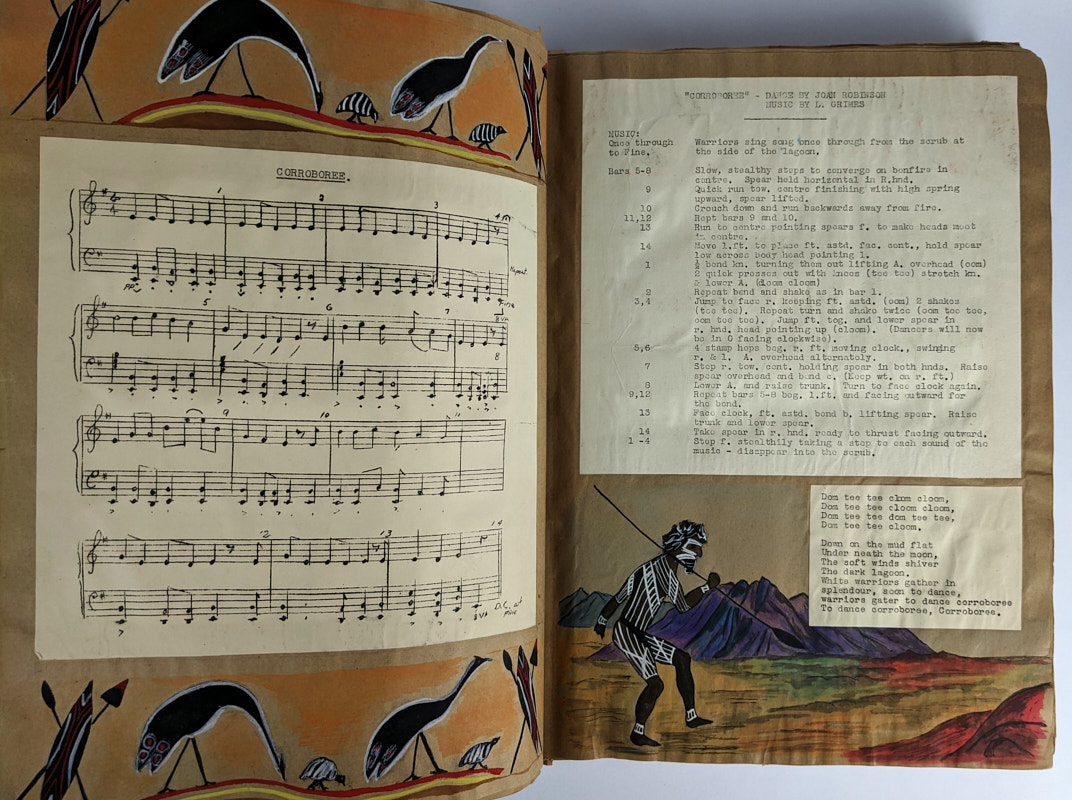 CORROBOREE.
2
3
Repeat.
Fine
5
6
7
8va
8
9
10
11
12
13
14
D.C. at
Fine
8va
"CORROBOREE" - DANCE BY JOAN ROBINSON
MUSIC BY L. GRIMES
MUSIC:
Once through Warriors sing song once through from the scrub at
to Fine. the side of the lagoon.
Bars 5-8 Slow, stealthy steps to converge on bonfire in
centre. Spear held horizontal in R.hnd.
9 Quick run tow. centre finishing with high spring
upward, spear lifted.
10 Crouch down and run backwards away from fire.
11,12 Rept bars 9 and 10.
13 Run to centre pointing spears f. to make heads meet
in centre.
14 Move l.ft. to place ft. astd. fac. cent., hold spear
low across body head pointing l.
1 ½ bend kn. turning them out lifting A. overhead (oom)
2 quick presses out with knees (tee tee) stretch kn.
& lower A. (cloom cloom)
2 Repeat bend and shake as in bar 1.
3,4 Jump to face r. keeping ft. astd. (oom) 2 shakes
(tee tee). Repeat turn and shake twice (oom tee tee,
oom tee tee). Jump ft. tog. and lower spear in
r. hnd. head pointing up (cloom). (Dancers will now
be in O facing clockwise).
5,6 4 stamp hops beg. r. ft. moving clock., swinging
r. & l. A. overhead alternately.
7 Step r. tow. cent. holding spear in both hnds. Raise
spear overhead and bend c. (Keep wt. on r. ft.)
8 Lower A. and raise trunk. Turn to face clock again.
9,12 Repeat bars 5-8 beg. l.ft. and facing outward for
the bend.
13 Face clock, ft. astd. bend b. lifting spear. Raise
trunk and lower spear.
14 Take spear in r. hnd. ready to thrust facing outward.
1 -4 Step f. stealthily taking a step to each sound of the
music - disappear into the scrub.
Dom tee tee cloom cloom,
Dom tee tee cloom cloom,
Dom tee tee dom tee tee,
Dom tee tee cloom.
Down on the mud flat
Under neath the moon,
The soft winds shiver
The dark lagoon.
White warriors gather in
splendour, soon to dance,
warriors gater to dance corroboree
To dance corroboree, Corroboree.